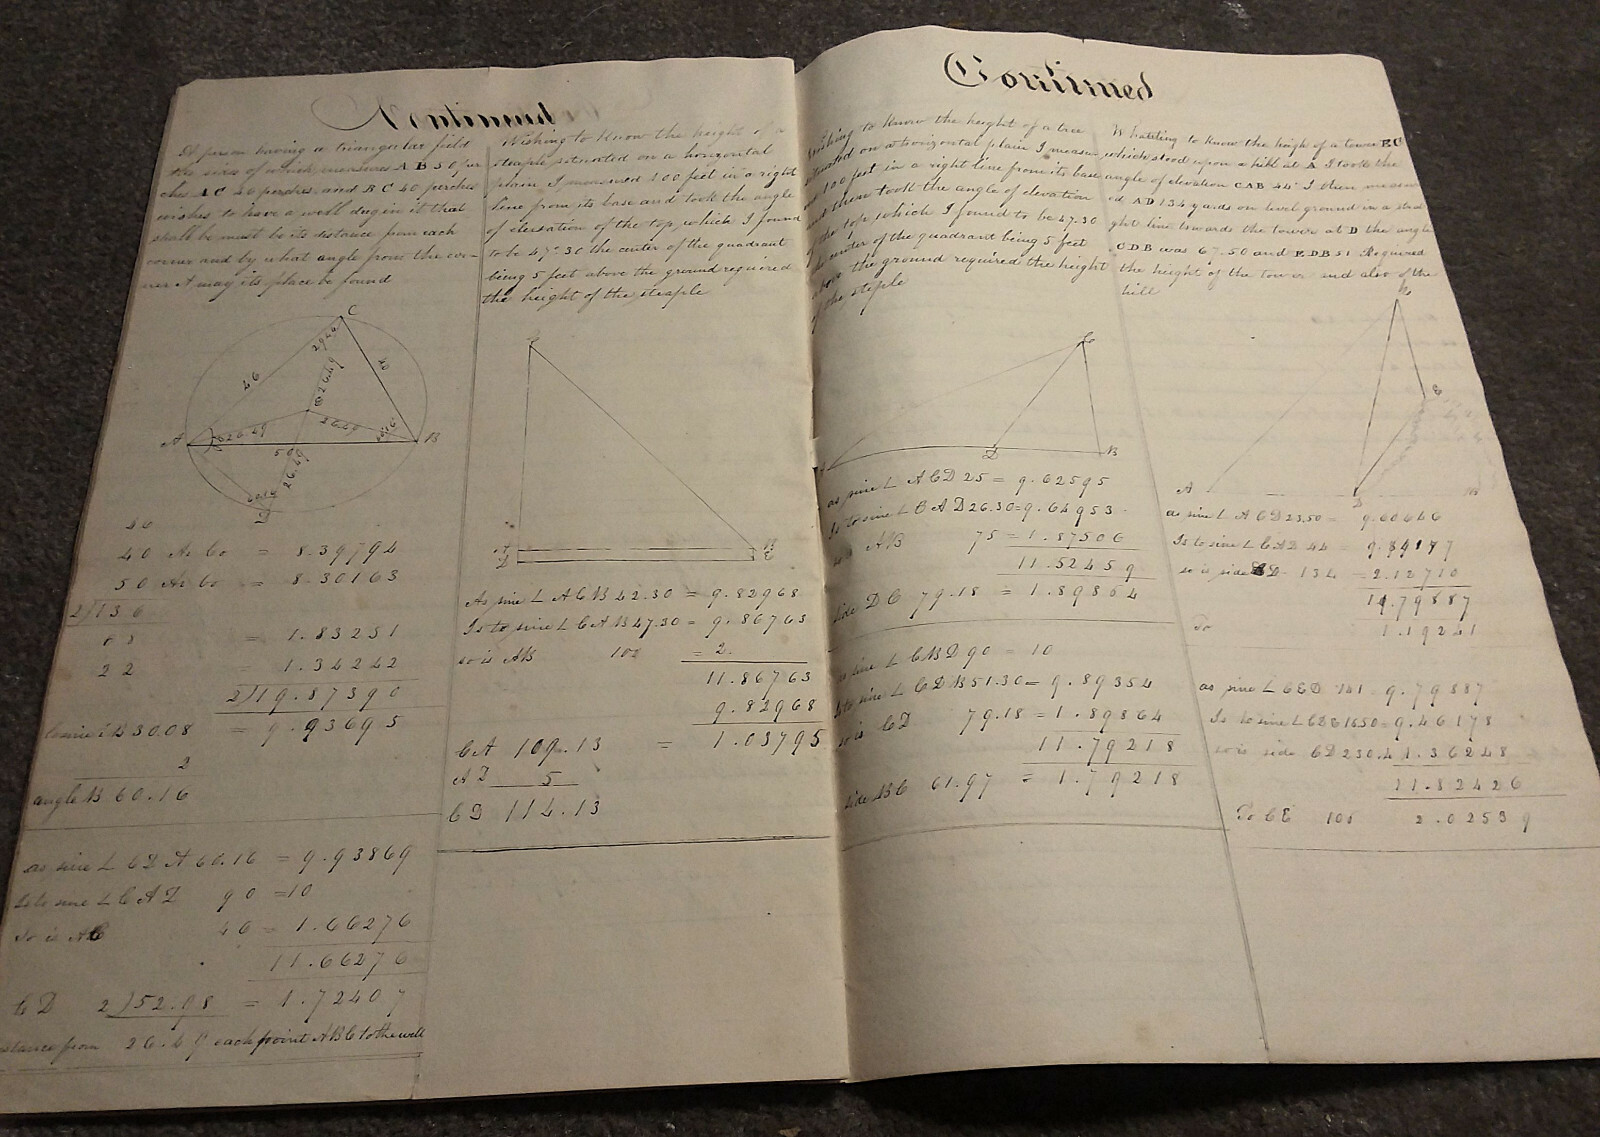 Continued
A person having a triangular field
the sides of which measures AB 50 per
ches AC 46 perches and BC 40 perches
wishes to have a well dug in it that
shall be must be its distance from each
corner and by what angle from the cor-
ner A may its place be found
C
29.44
46
40
26.49
26.49
26.49
A
B
50
26.49
60.16
D
46
40 Ar Co = 8.39794
50 Ar Co = 8.30103
2)136
68 = 1.83251
22 = 1.34242
2)19.87390
30.08 = 9.93695
2
angle B 60.16
as sine L CDA 60.16 = 9.93869
Is to sine L CAD 90 = 10
So is AC 46 = 1.66276
11.66276
to D 2)52.98 = 1.72407
26.49 each point ABC to the well
Wishing to know the height of a
steaple situated on a horizontal
plain I measured 100 feet in a right
line from its base and took the angle
of elevation of the top which I found
to be 47°.30 the center of the quadrant
being 5 feet above the ground required
the height of the steaple
C
A
D
B
E
As sine L ACB 42.30 = 9.82968
Is to sine L CAB 47.30 = 9.86763
so is AB 100 = 2.
11.86763
9.82968
CA 109.13 = 1.03795
AD 5
CD 114.13
Continued
Wishing to know the height of a tree
situated on a horizontal plain I measur
100 feet in a right line from its base
and there took the angle of elevation
of the top which I found to be 47.30
the center of the quadrant being 5 feet
above the ground required the height
of the steple
C
D
B
as sine L ACD 25 = 9.62595
Is to sine L CAD 26.30 = 9.64953
so is AB 75 = 1.87506
11.52459
side DC 79.18 = 1.89864
as sine L CBD 90 = 10
Is to sine L CDB 51.30 = 9.89354
so is CD 79.18 = 1.89864
11.79218
side BC 61.97 = 1.79218
Whatting to know the heigh of a tower EC
which stood upon a hill at A I took the
angle of elevation CAB 44° I then measur
ed AD 134 yards on level ground in a strai
ght line towards the tower at D the angle
CDB was 67.50 and EDB 51 Required
the height of the tower and also of the
hill
A
D
as sine L ACD 23.50 = 9.60646
Is to sine L CAD 44 = 9.84177
so is side D 134 = 2.12710
11.79887
To 1.19241
as sine L CED 141 9.79887
Is to sine L CDE 16.50 = 9.46178
so is side CD 230.4 1.36248
11.82426
To CE 106 2.02539